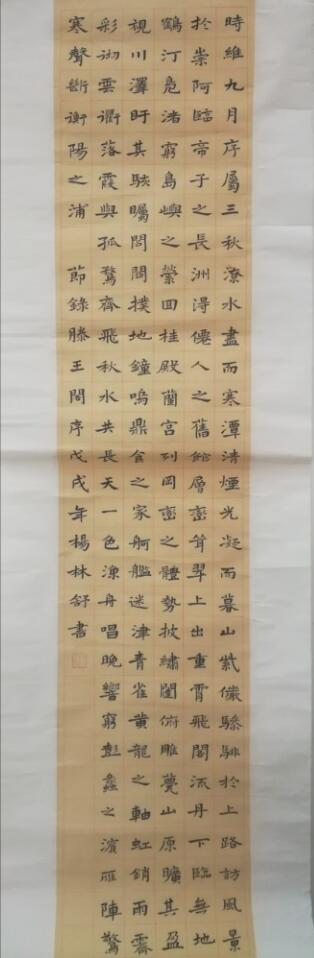 時維九月序屬三秋潦水盡而寒潭清煙光凝而暮山紫儼驂騑於上路訪風景
於崇阿臨帝子之長洲得僊人之舊館層巒聳翠上出重霄飛閣流丹下臨無地
鶴汀鳧渚窮島嶼之縈回桂殿蘭宮列岡巒之體勢披繡闥俯雕甍山原曠其盈
視川澤盱其駭矚閭閻撲地鐘鳴鼎食之家舸艦迷津青雀黃龍之軸虹銷雨霽
彩徹雲衢落霞與孤鶩齊飛秋水共長天一色漁舟唱晚響窮彭蠡之濱雁陣驚
寒聲斷衡陽之浦 節錄滕王閣序戊戌年楊林舒書